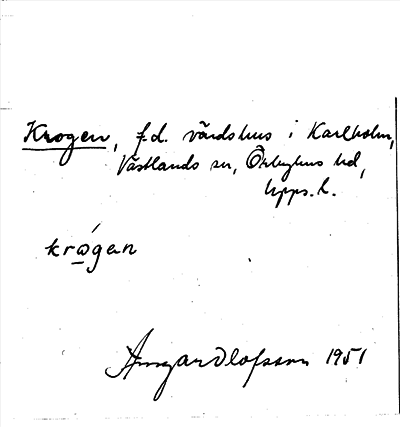 Krogen, f.d. värdshus i Karlholm,
Västlands sn, Örbyhus hd,
Upps. l.
krώ̲gen
Olofsson 1951